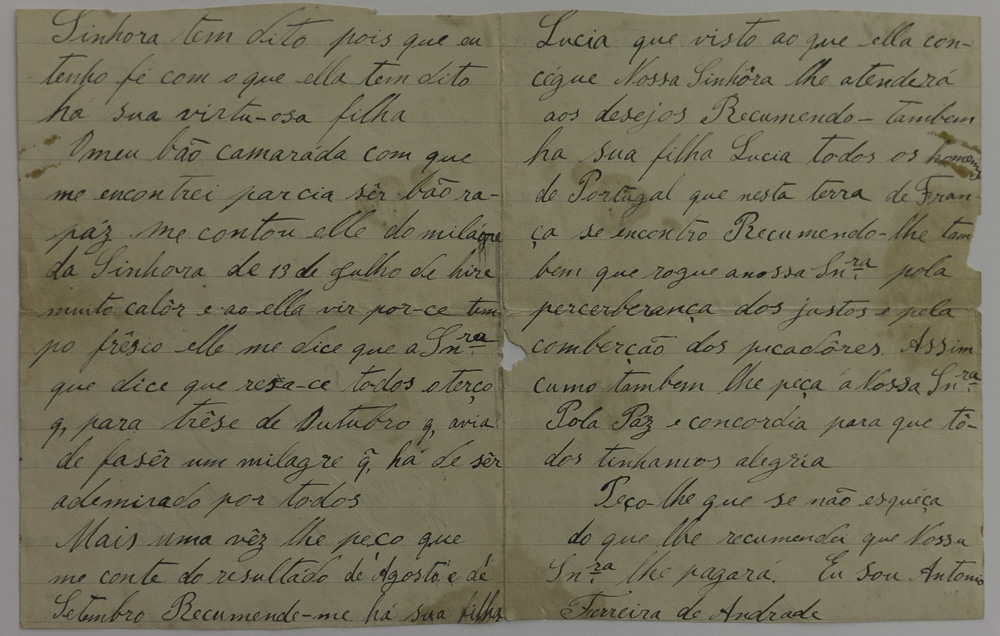 Sinhora tem dito pois que eu
tenho fé com o que ella tem dito
há sua virtu-osa filha
O meu bão camaráda com que
me encontrei parcia sêr bão ra-
páz me contou elle do milagre
da Sinhora de 13 de Julho de hire
muito calôr e ao ella vir por-ce tem
po frêsco elle me dice que a Snra
que dice que resa-ce todos o terço
q, para trêse de Outubro q, avia
de fasêr um milagre q̃, há de sêr
ademirado por todos
Mais uma vêz lhe peço que
me conte do resultádo de Agosto e de
Setembro Recumende-me há sua filha
Lucia que visto ao que ella con-
cégue Nossa Sinhôra lhe atenderá
aos desejos Recumendo-tambem
ha sua filha Lucia todos os homens
de Portugal que nesta terra de Fran-
ça se encontro Recumendo-lhe tam
bem que rogue a nossa Snra pola
percerberança dos justos e pela
comberção dos picadôres. Assim
cumo tambem lhe peça á Nossa Snra
Pola Páz e concordia para que tô-
dos tinhamos alegria
Peço-lhe que se não esquéça
do que lhe recumendei que Nossa
Snra lhe pagará. Eu sou Antonio
Ferreira de Andrade